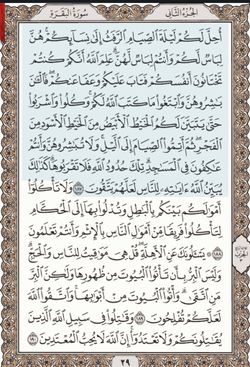 الجزء الثاني سورة البقرة
أُحِلَّ لَكُمْ لَيْلَةَ ٱلصِّيَامِ ٱلرَّفَثُ إِلَىٰ نِسَآئِكُمْ ۚ هُنَّ
لِبَاسٌ لَّكُمْ وَأَنتُمْ لِبَاسٌ لَّهُنَّ ۗ عَلِمَ ٱللَّهُ أَنَّكُمْ كُنتُمْ
تَخْتَانُونَ أَنفُسَكُمْ فَتَابَ عَلَيْكُمْ وَعَفَا عَنكُمْ ۖ فَٱلْـَٰٔنَ
بَٰشِرُوهُنَّ وَٱبْتَغُوا۟ مَا كَتَبَ ٱللَّهُ لَكُمْ ۚ وَكُلُوا۟ وَٱشْرَبُوا۟
حَتَّىٰ يَتَبَيَّنَ لَكُمُ ٱلْخَيْطُ ٱلْأَبْيَضُ مِنَ ٱلْخَيْطِ ٱلْأَسْوَدِ مِنَ
ٱلْفَجْرِ ۖ ثُمَّ أَتِمُّوا۟ ٱلصِّيَامَ إِلَى ٱلَّيْلِ ۚ وَلَا تُبَٰشِرُوهُنَّ وَأَنتُمْ
عَٰكِفُونَ فِى ٱلْمَسَٰجِدِ ۗ تِلْكَ حُدُودُ ٱللَّهِ فَلَا تَقْرَبُوهَا ۗ كَذَٰلِكَ
يُبَيِّنُ ٱللَّهُ ءَايَٰتِهِۦ لِلنَّاسِ لَعَلَّهُمْ يَتَّقُونَ ١٨٧ وَلَا تَأْكُلُوٓا۟
أَمْوَٰلَكُم بَيْنَكُم بِٱلْبَٰطِلِ وَتُدْلُوا۟ بِهَآ إِلَى ٱلْحُكَّامِ
لِتَأْكُلُوا۟ فَرِيقًا مِّنْ أَمْوَٰلِ ٱلنَّاسِ بِٱلْإِثْمِ وَأَنتُمْ تَعْلَمُونَ
١٨٨ يَسْـَٔلُونَكَ عَنِ ٱلْأَهِلَّةِ ۖ قُلْ هِىَ مَوَٰقِيتُ لِلنَّاسِ وَٱلْحَجِّ ۗ
وَلَيْسَ ٱلْبِرُّ بِأَن تَأْتُوا۟ ٱلْبُيُوتَ مِن ظُهُورِهَا وَلَٰكِنَّ ٱلْبِرَّ
مَنِ ٱتَّقَىٰ ۗ وَأْتُوا۟ ٱلْبُيُوتَ مِنْ أَبْوَٰبِهَا ۚ وَٱتَّقُوا۟ ٱللَّهَ
لَعَلَّكُمْ تُفْلِحُونَ ١٨٩ وَقَٰتِلُوا۟ فِى سَبِيلِ ٱللَّهِ ٱلَّذِينَ
يُقَٰتِلُونَكُمْ وَلَا تَعْتَدُوٓا۟ ۚ إِنَّ ٱللَّهَ لَا يُحِبُّ ٱلْمُعْتَدِينَ ١٩٠
٢٩